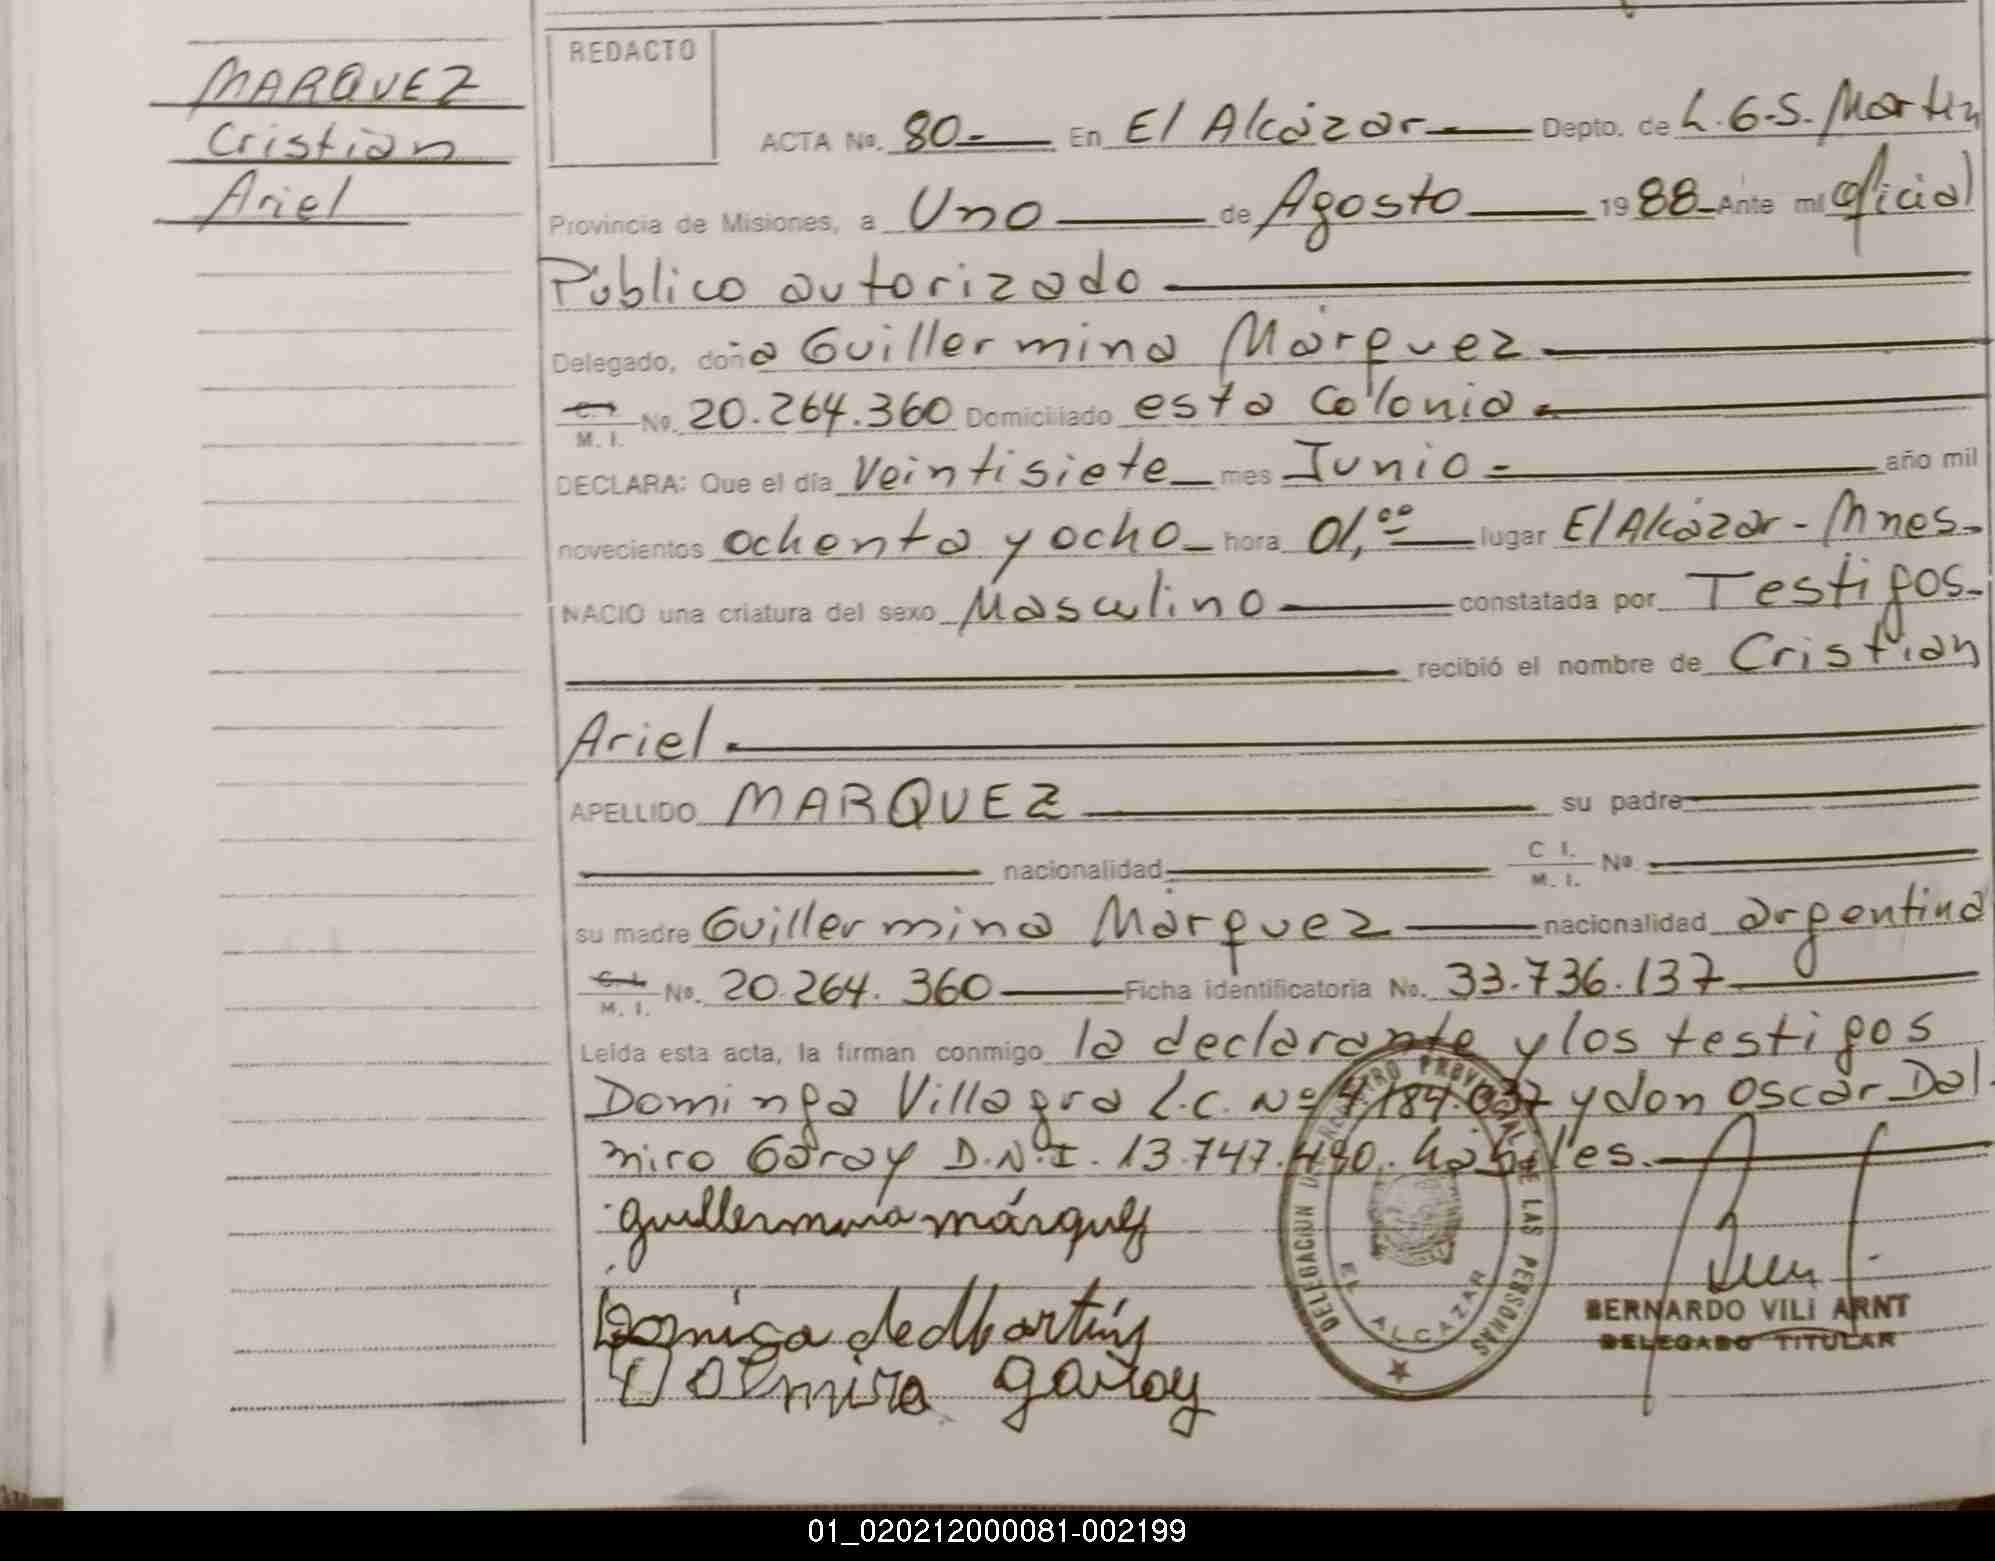 MARQUEZ
Cristian
Ariel
REDACTO
ACTA No. 80.- En El Alcázar Depto. de L.G.S. Martín
Provincia de Misiones, a Uno de Agosto 1988 Ante mi Oficial
Público autorizado
Delegado, doña Guillermina Márquez
M. I. No. 20.264.360 Domiciliado esta Colonia.
DECLARA: Que el día Veintisiete mes Junio año mil
novecientos ochenta y ocho hora 01,00 lugar El Alcázar - Mnes.
NACIO una criatura del sexo Masculino constatada por Testigos.
recibió el nombre de Cristian
Ariel.
APELLIDO MARQUEZ su padre
nacionalidad C I. M. I. No
su madre Guillermina Márquez nacionalidad argentina
C. I. M. I. No. 20.264.360 Ficha identificatoria No. 33.736.137
Leida esta acta, la firman conmigo la declarante y los testigos
Dominga Villagra L.C. No 4.184.037 y don Oscar Dal
miro Garay D.N.I. 13.747.490. hábiles.
guillermina márquez
Dominga de Martíns
Dalmiro garay
DELEGACION DEL REGISTRO PROVINCIAL DE LAS PERSONAS
EL ALCAZAR
BERNARDO VILI ARNT
DELEGADO TITULAR
01_020212000081-002199